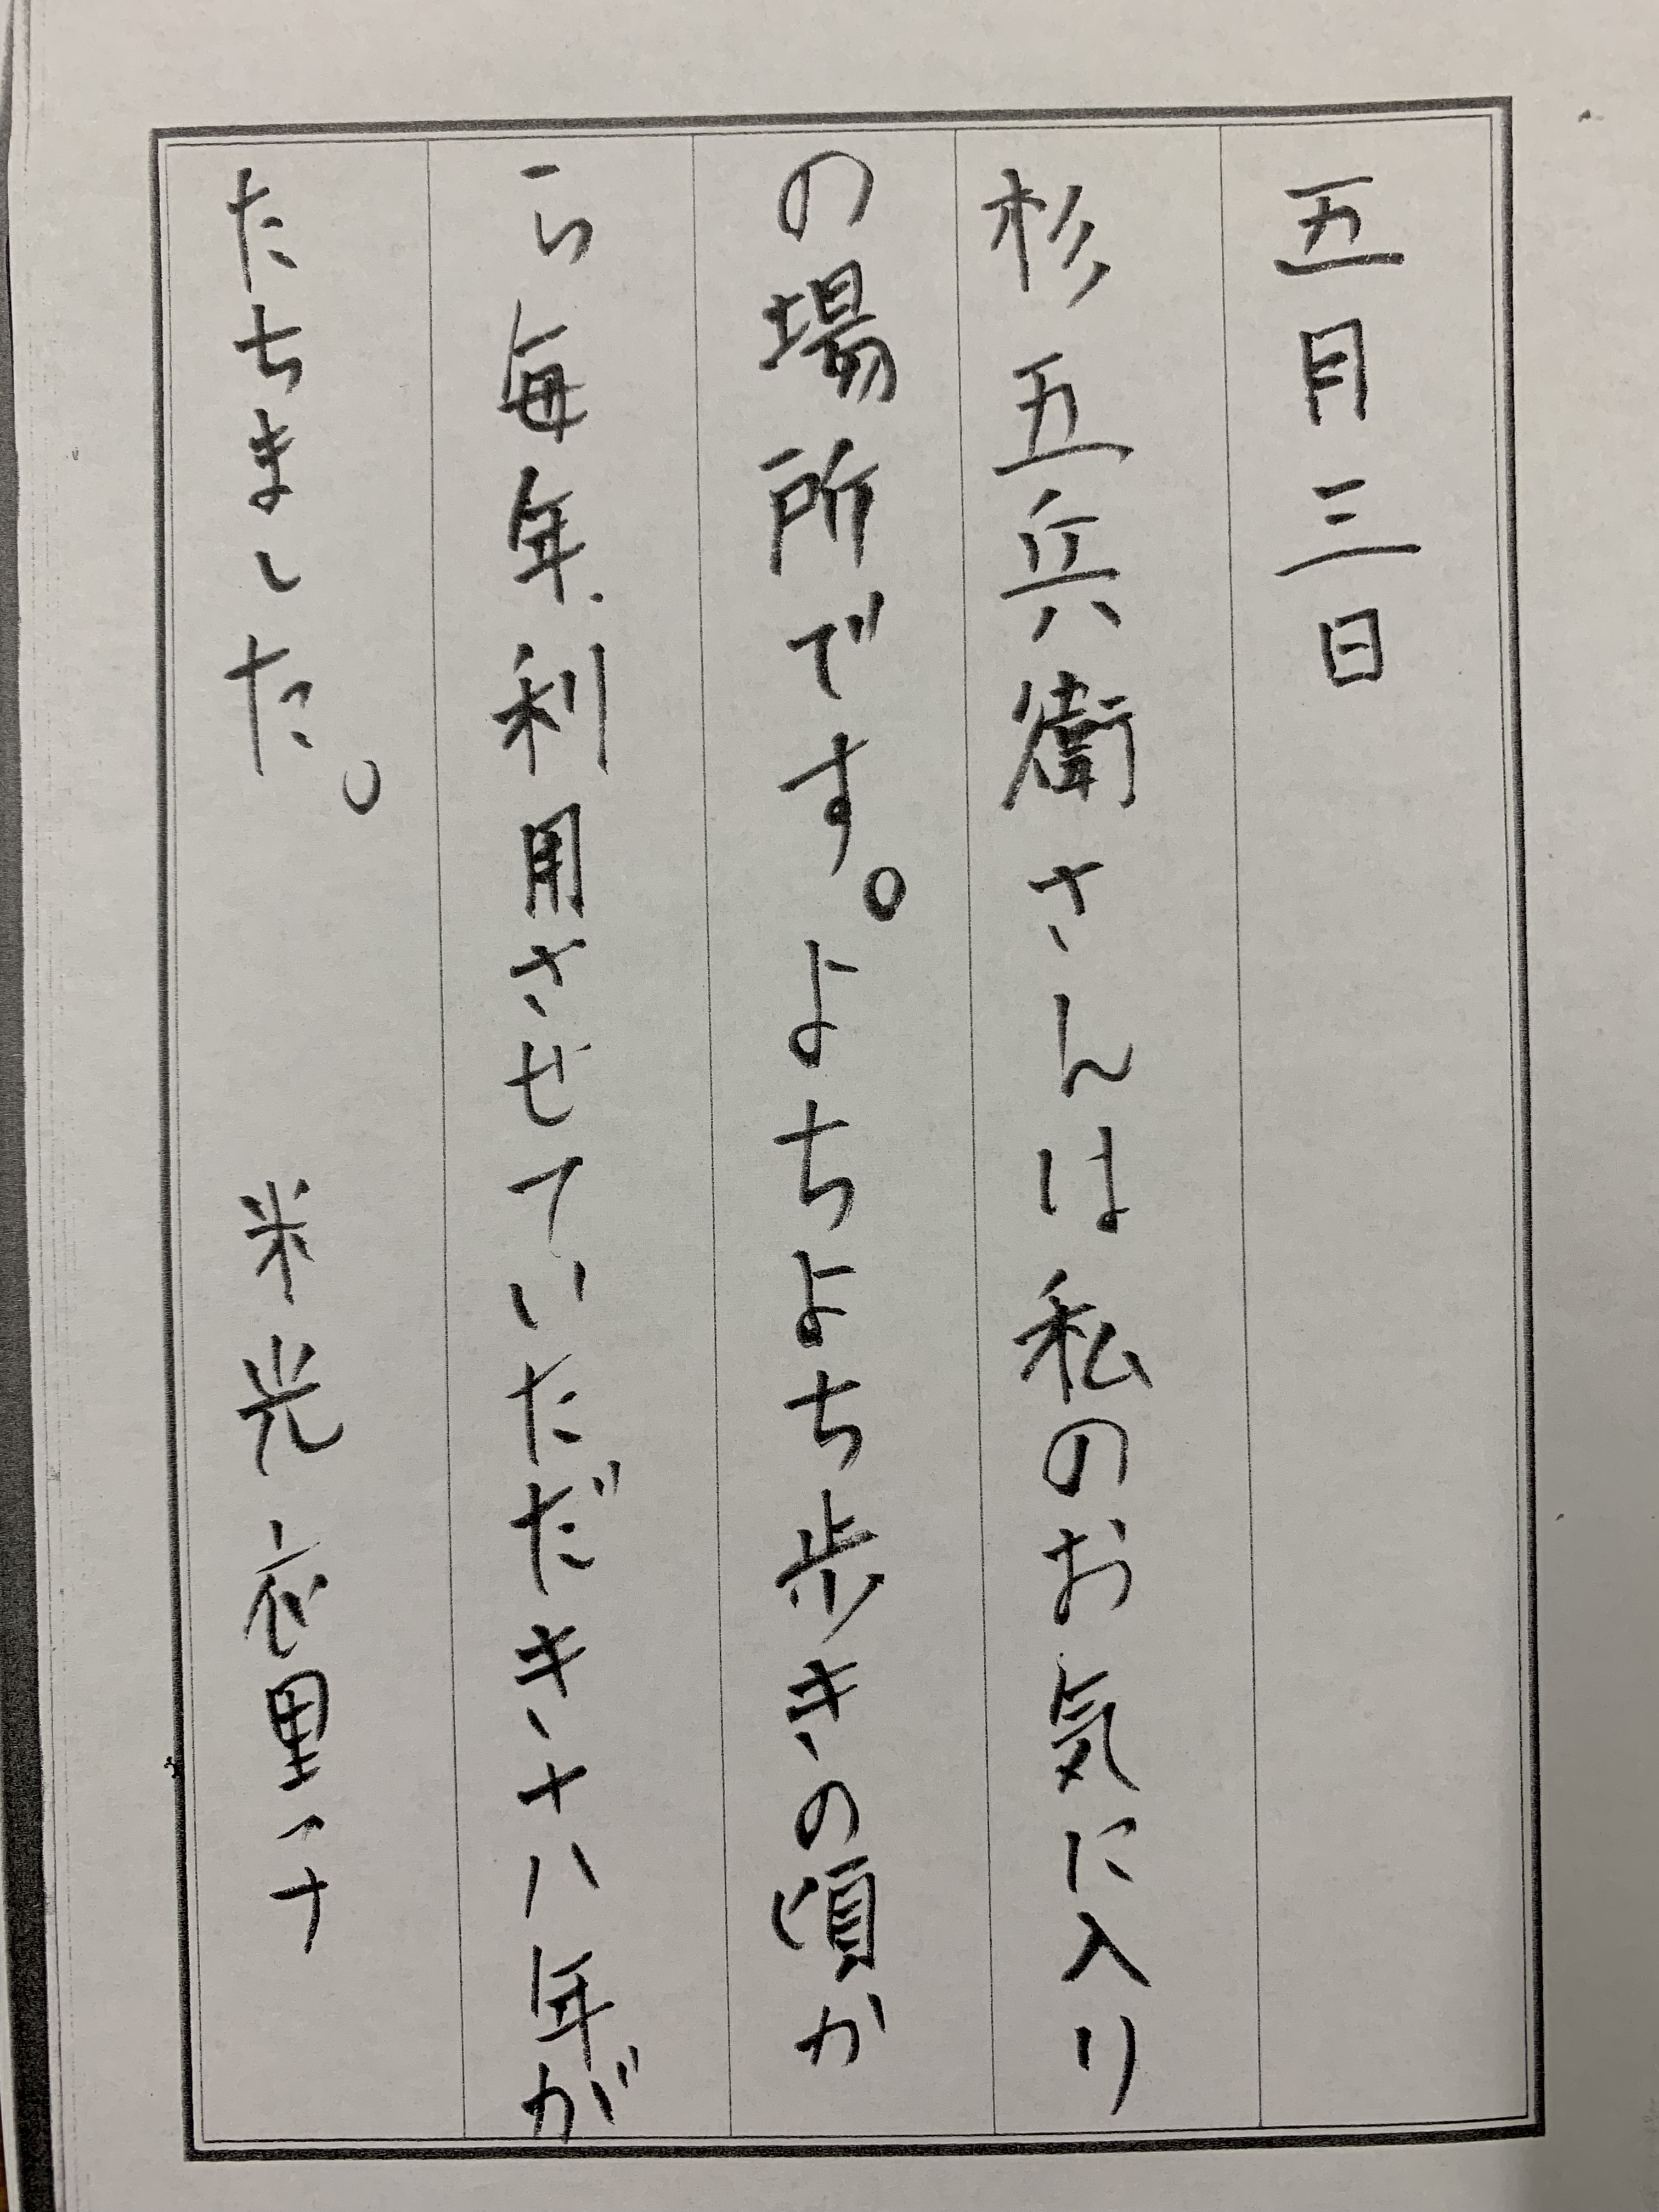 五月三日
杉五兵衛さんは私のお気に入り
の場所です。よちよち歩きの頃か
ら毎年利用させていただき十八年が
たちました。 米光衣里子